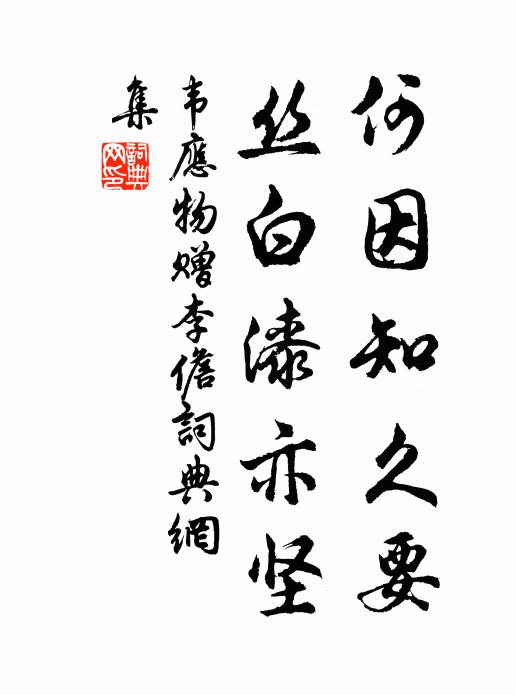 何因知久要
丝白漆亦坚
韦應物赠李儋詞典網
集
詞典网印